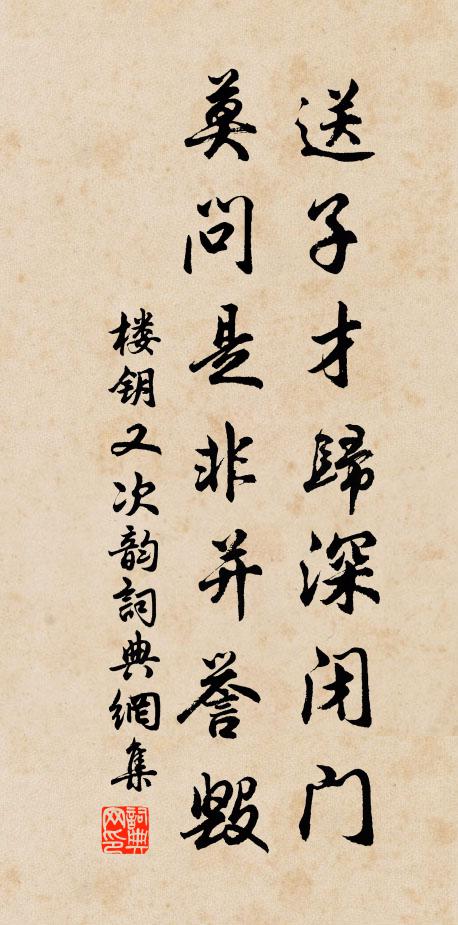 送子才歸深闭门
莫问是非并誉毁
楼钥又次韵詞典網集
詞典网印